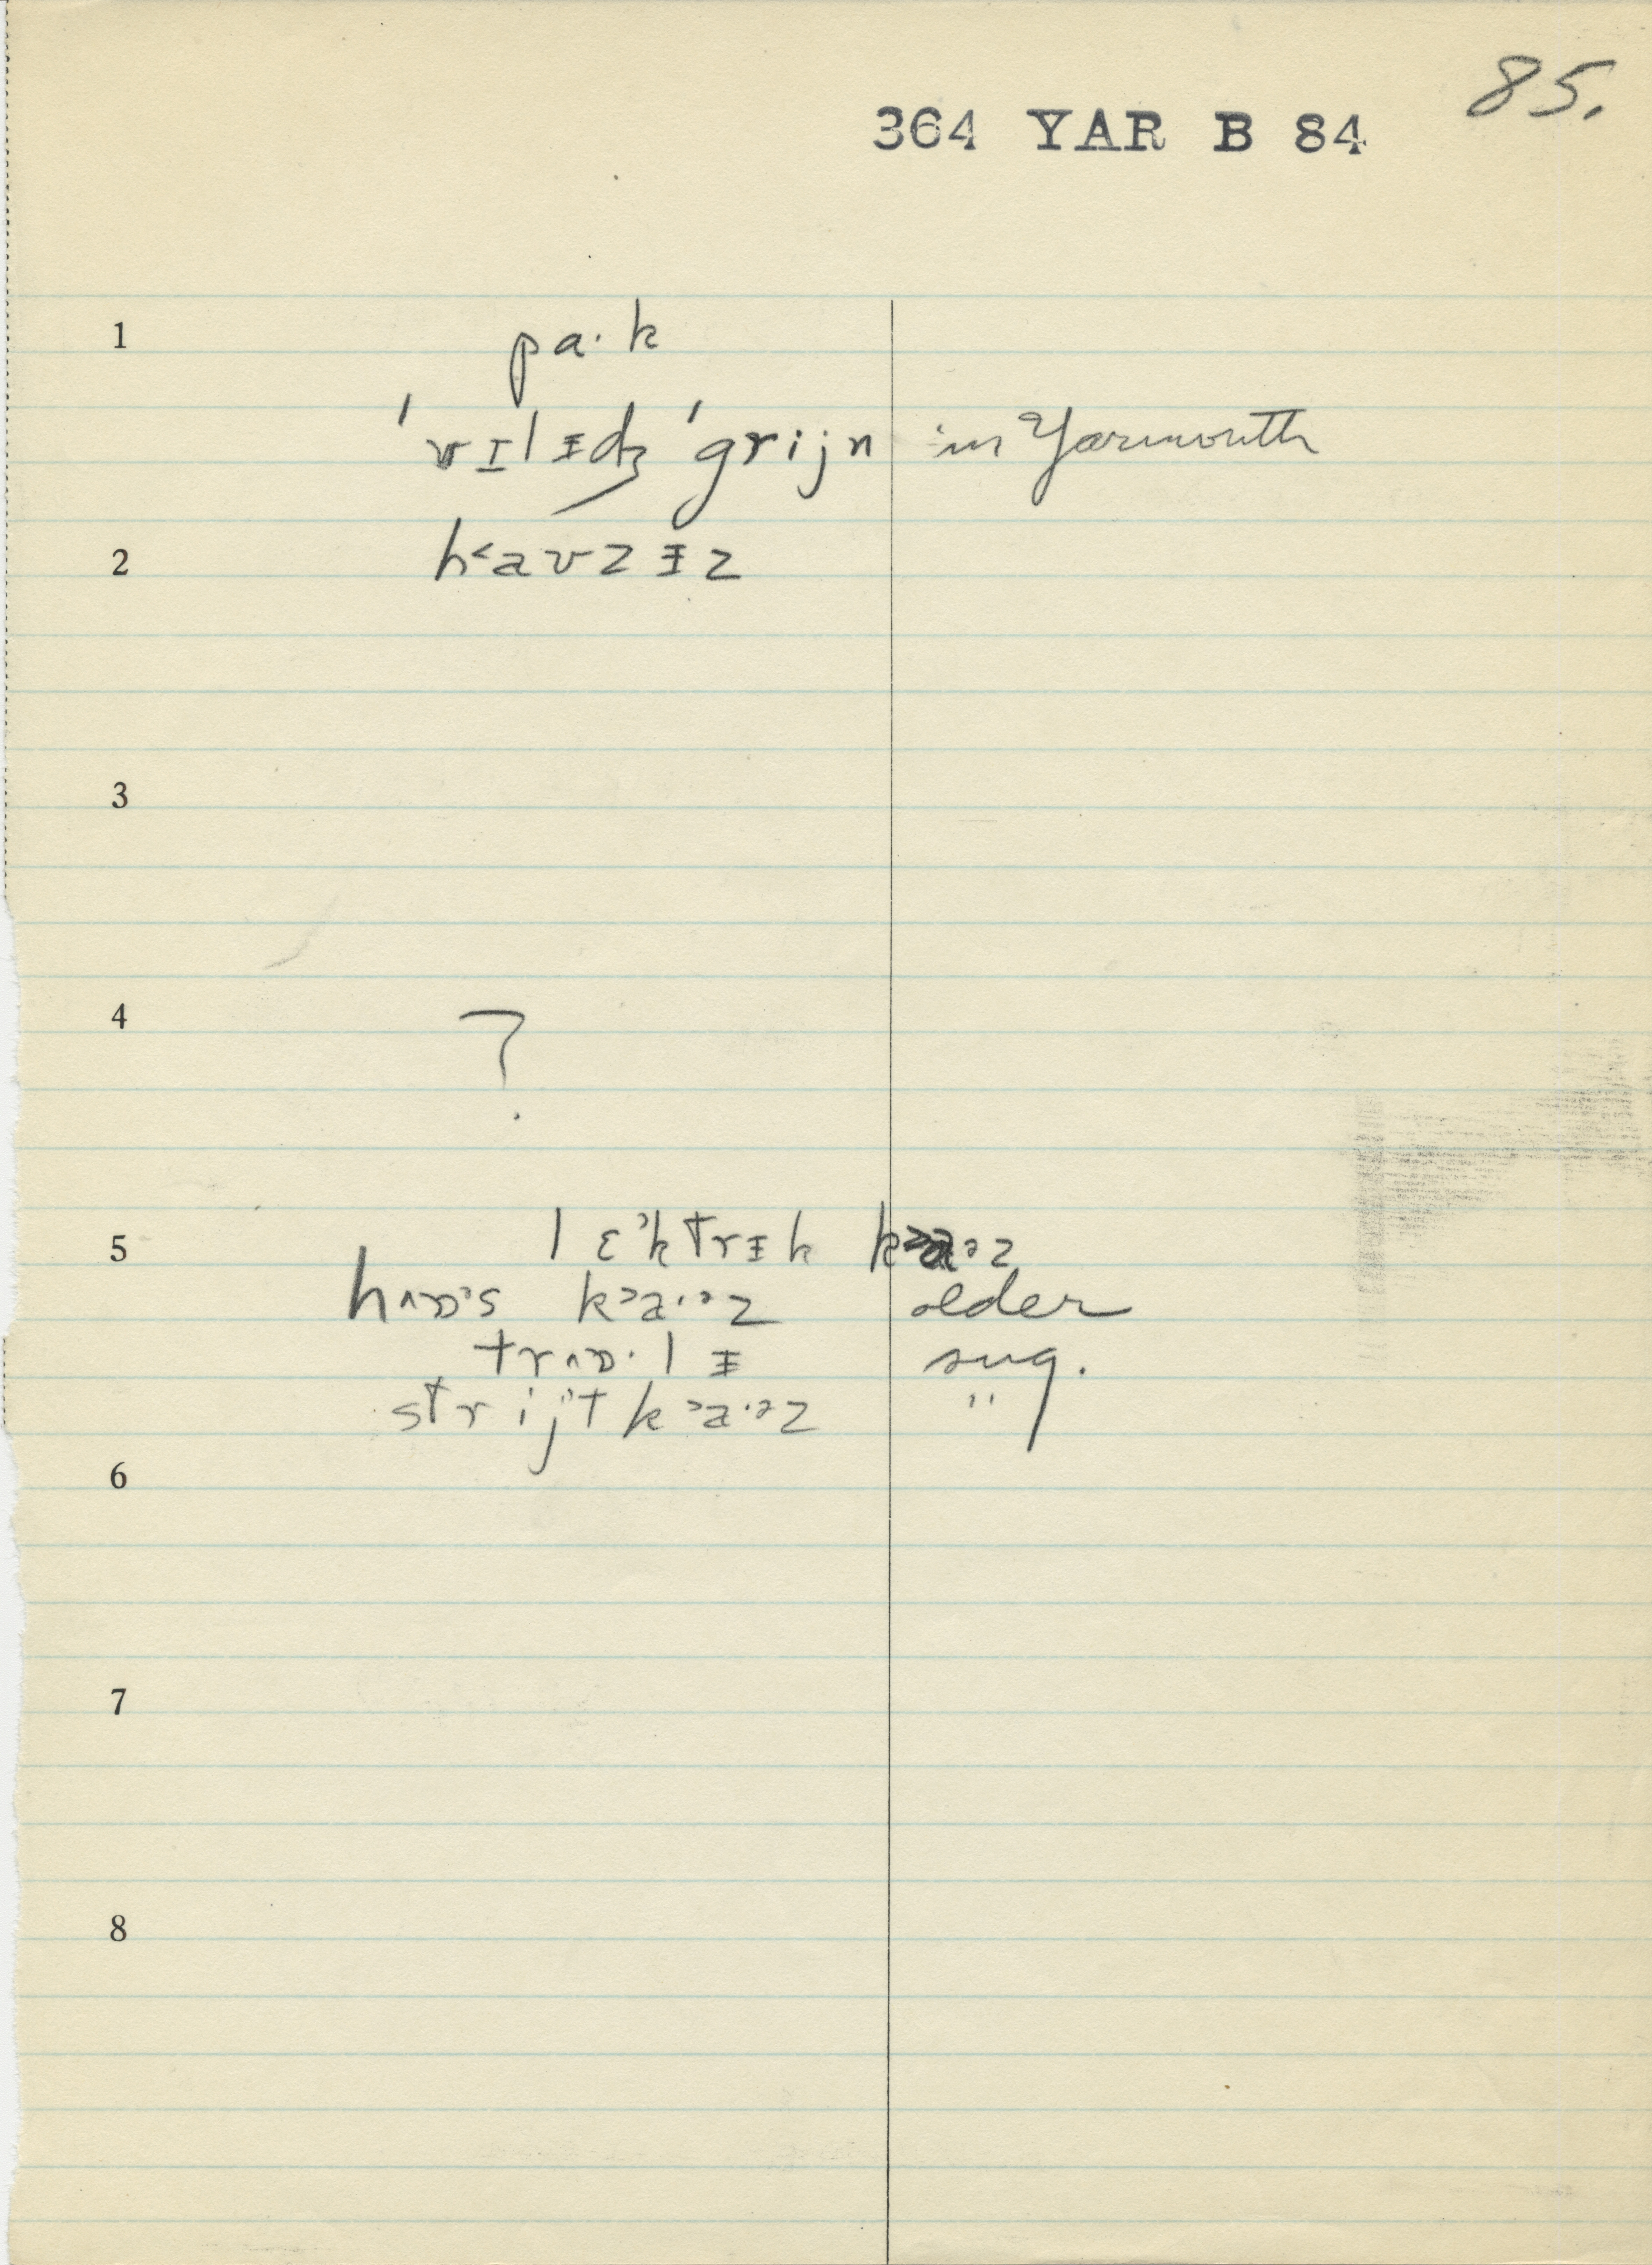 85.
364 YAR B 84
1 pa·k
ˈvɪlɪ̵dʒ ˈgrijn in Yarmouth
2 h˂aʊzɪ̵z
3
4 ?
5 lɛᵊktrɪ̵k k˃a·ᵊz
hʌɒᵊs k˃a·ᵊz older
trʌɒ·lɪ̵ sug.
strijᵊt k˃a·ᵊz "
6
7
8